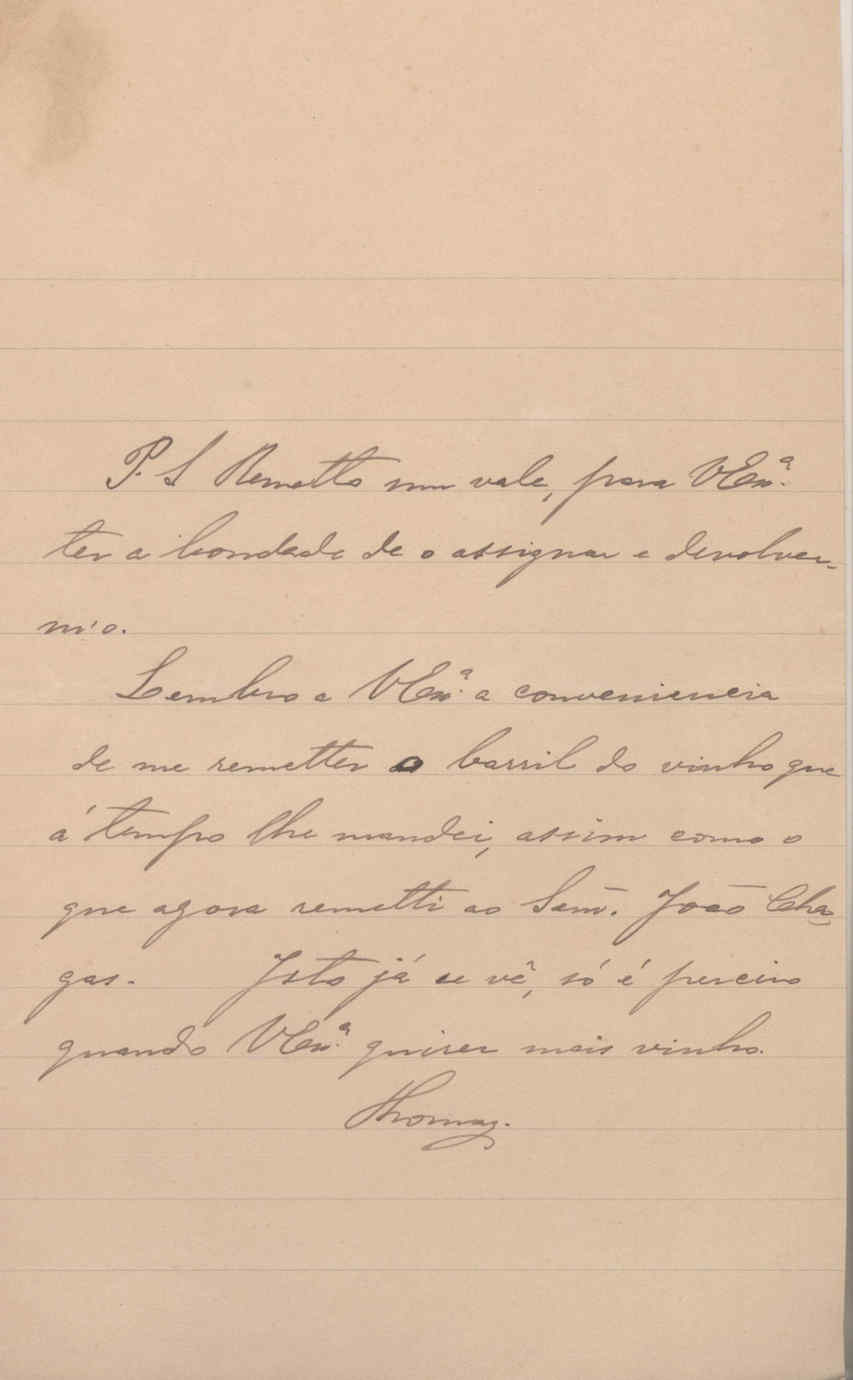 P. S Remetto um vale, para VExª.
ter a bondade de o assignar e devolver-
m'o.
Lembro a VExª. a conveniencia
de me remetter o barril do vinho que
á tempo lhe mandei, assim como o
que agora remetti ao Senr. João Cha-
gas. Isto já se vê, só é preciso
quando VExª. quiser mais vinho.
Thomaz.